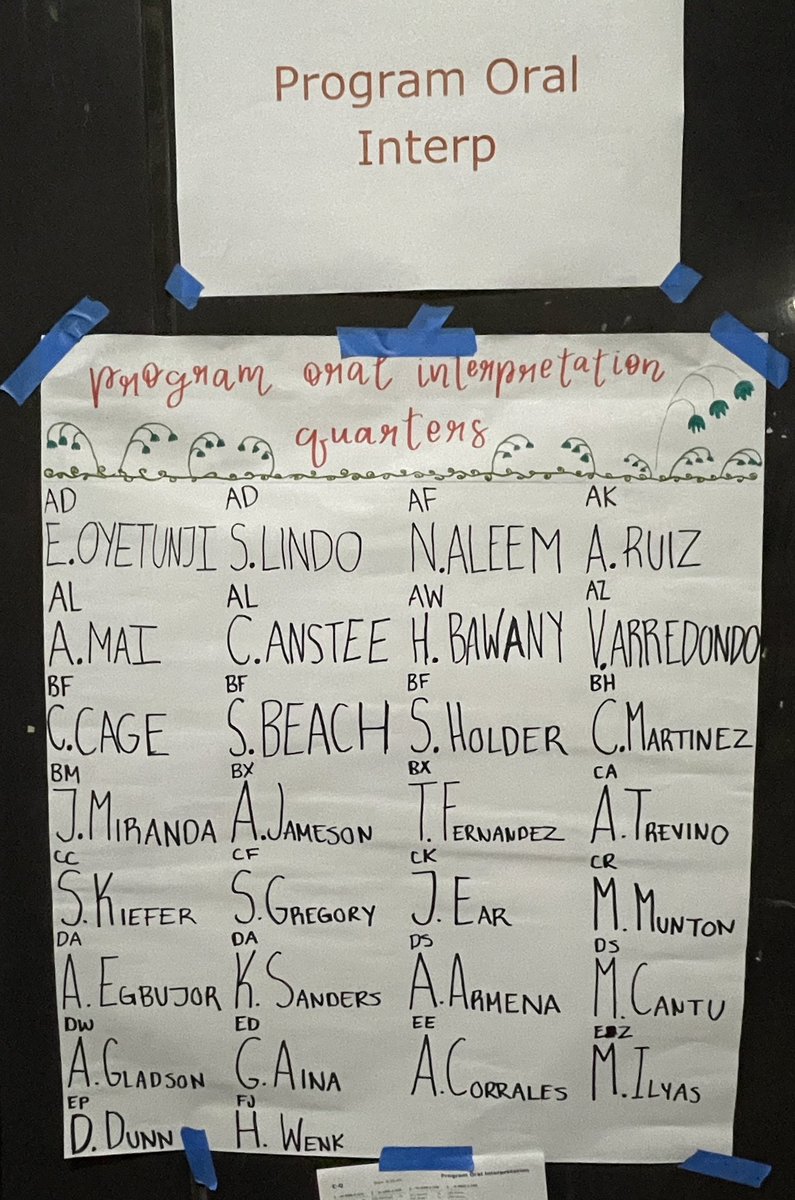 Program Oral
Interp
program oral interpretation
quarters
AD AD AF AK
E.OYETUNJI S.LINDO N.ALEEM A.RUIZ
AL AL AW AZ
A.MAI C.ANSTEE H.BAWANY V.ARREDONDO
BF BF BF BH
C.CAGE S.BEACH S.HOLDER C.MARTINEZ
BM BX BX CA
J.MIRANDA A.JAMESON T.FERNANDEZ A.TREVINO
CC CF CK CR
S.KIEFER S.GREGORY J.EAR M.MUNTON
DA DA DS DS
A.EGBUJOR K.SANDERS A.ARMENA M.CANTU
DW ED EE EZ
A.GLADSON G.AINA A.CORRALES M.ILYAS
EP FJ
D.DUNN H.WENK
Program Oral Interpretation